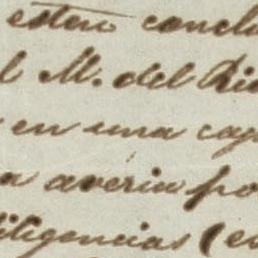 estero conclu
l M. del Rio
en una cap
a averia po
iligencias (e